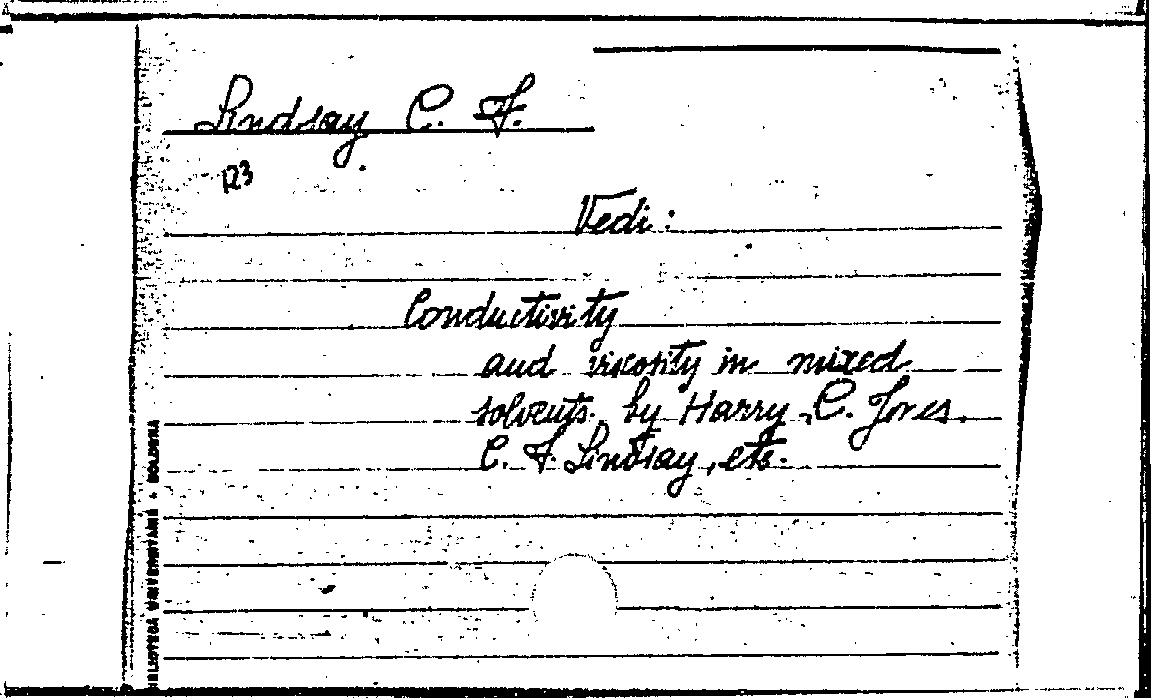 Lindsay C. F.
123
Vedi:
Conductivity
and viscosity in mixed
solvents. by Harry C. Jones.
C. F. Lindsay, etc.
BIBLIOTECA UNIVERSITARIA - BOLOGNA